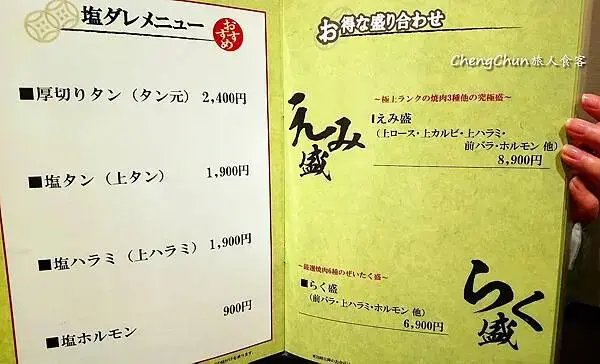 塩ダレメニュー
おすすめ
■厚切りタン（タン元） 2,400円
■塩タン（上タン） 1,900円
■塩ハラミ（上ハラミ） 1,900円
■塩ホルモン 900円
お得な盛り合わせ
ChengChun旅人食客
えみ盛
～極上ランクの焼肉3種他の究極盛～
■えみ盛
（上ロース・上カルビ・上ハラミ・
前バラ・ホルモン 他）
8,900円
～厳選焼肉6種のぜいたく盛～
■らく盛
（前バラ・上ハラミ・ホルモン 他）
6,900円
らく盛